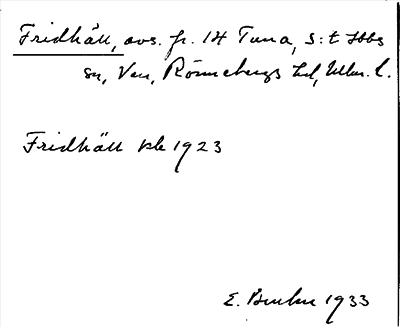 Fridhäll, avs. fr. 14 Tuna, S:t Ibbs
sn, Ven, Rönnebergs hd, Mlm. l.
Fridhäll kb 1923
E. 1933